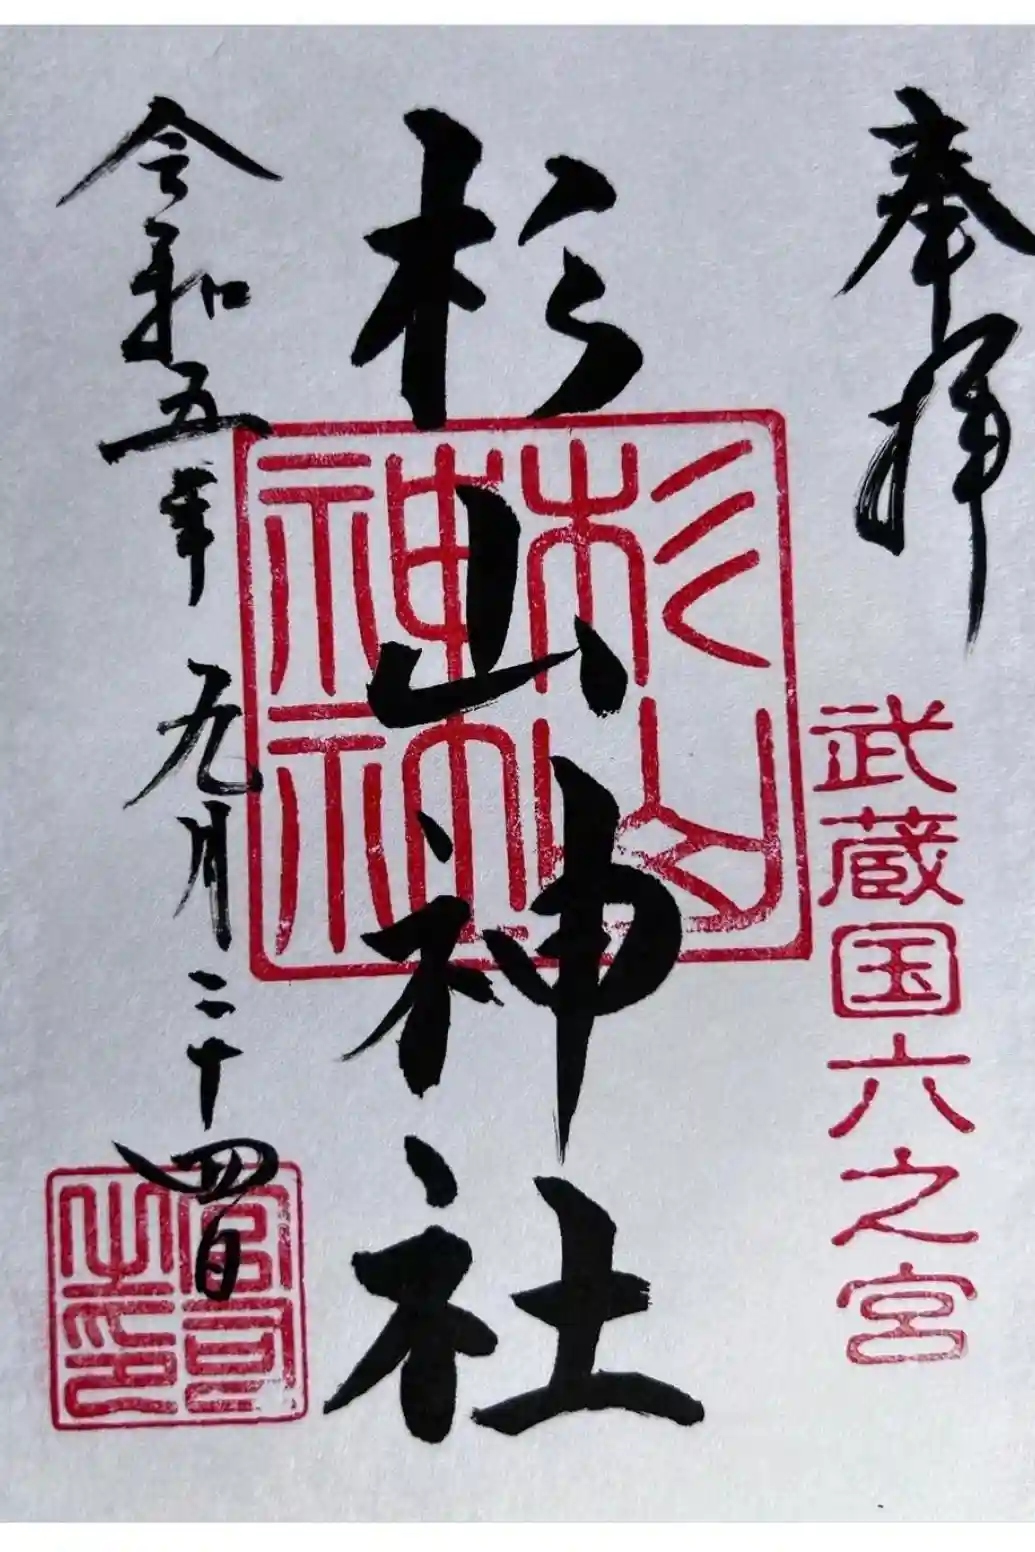 奉拝
武蔵国六之宮
杉山神社
杉山
神社
令和五年九月二十四日
宮司
之印